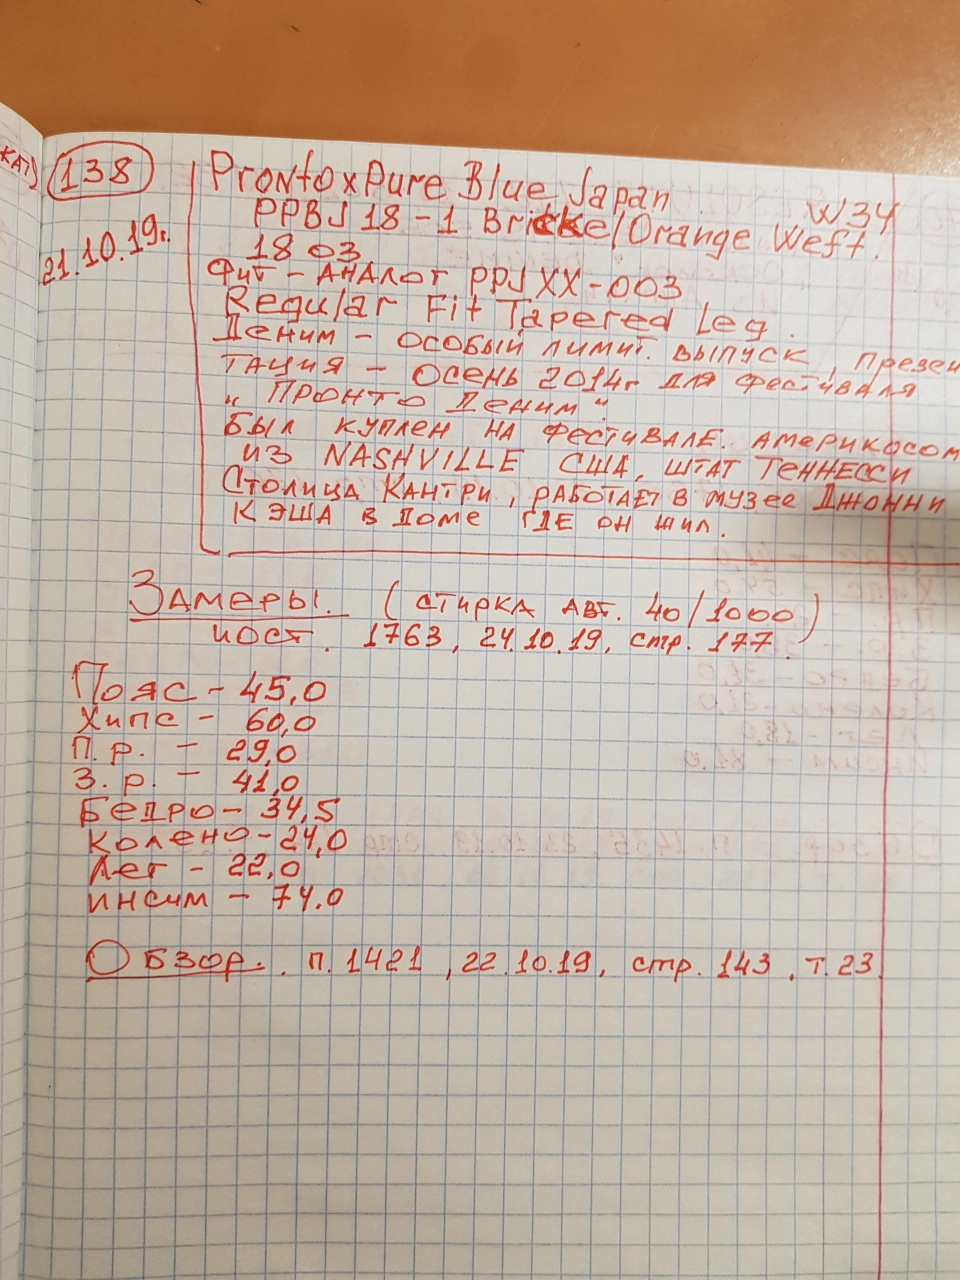 КАТ)
138
21.10.19г.
Pronto x Pure Blue Japan W34
PPBJ 18-1 Bricke/Orange Weft.
1803
Фит - АНАЛОГ PPJ XX-003
Regular Fit Tapered Leg.
Деним - особый лимит. выпуск, презен
тация - осень 2014г для фестиваля
"Пронто Деним".
Был куплен на фестивале. америкосом
из NASHVILLE США, штат Теннесси
Столица Кантри, работает в музее Джонни
Кэша в доме где он жил.
Замеры. (стирка авт. 40/1000)
пост. 1763, 24.10.19, стр. 177.
Пояс - 45,0
Хипс - 60,0
П.р. - 29,0
З.р. - 41,0
Бедро - 34,5
Колено - 24,0
Лег - 22,0
инсим - 74.0
Обзор. п. 1421, 22.10.19, стр. 143, т. 23